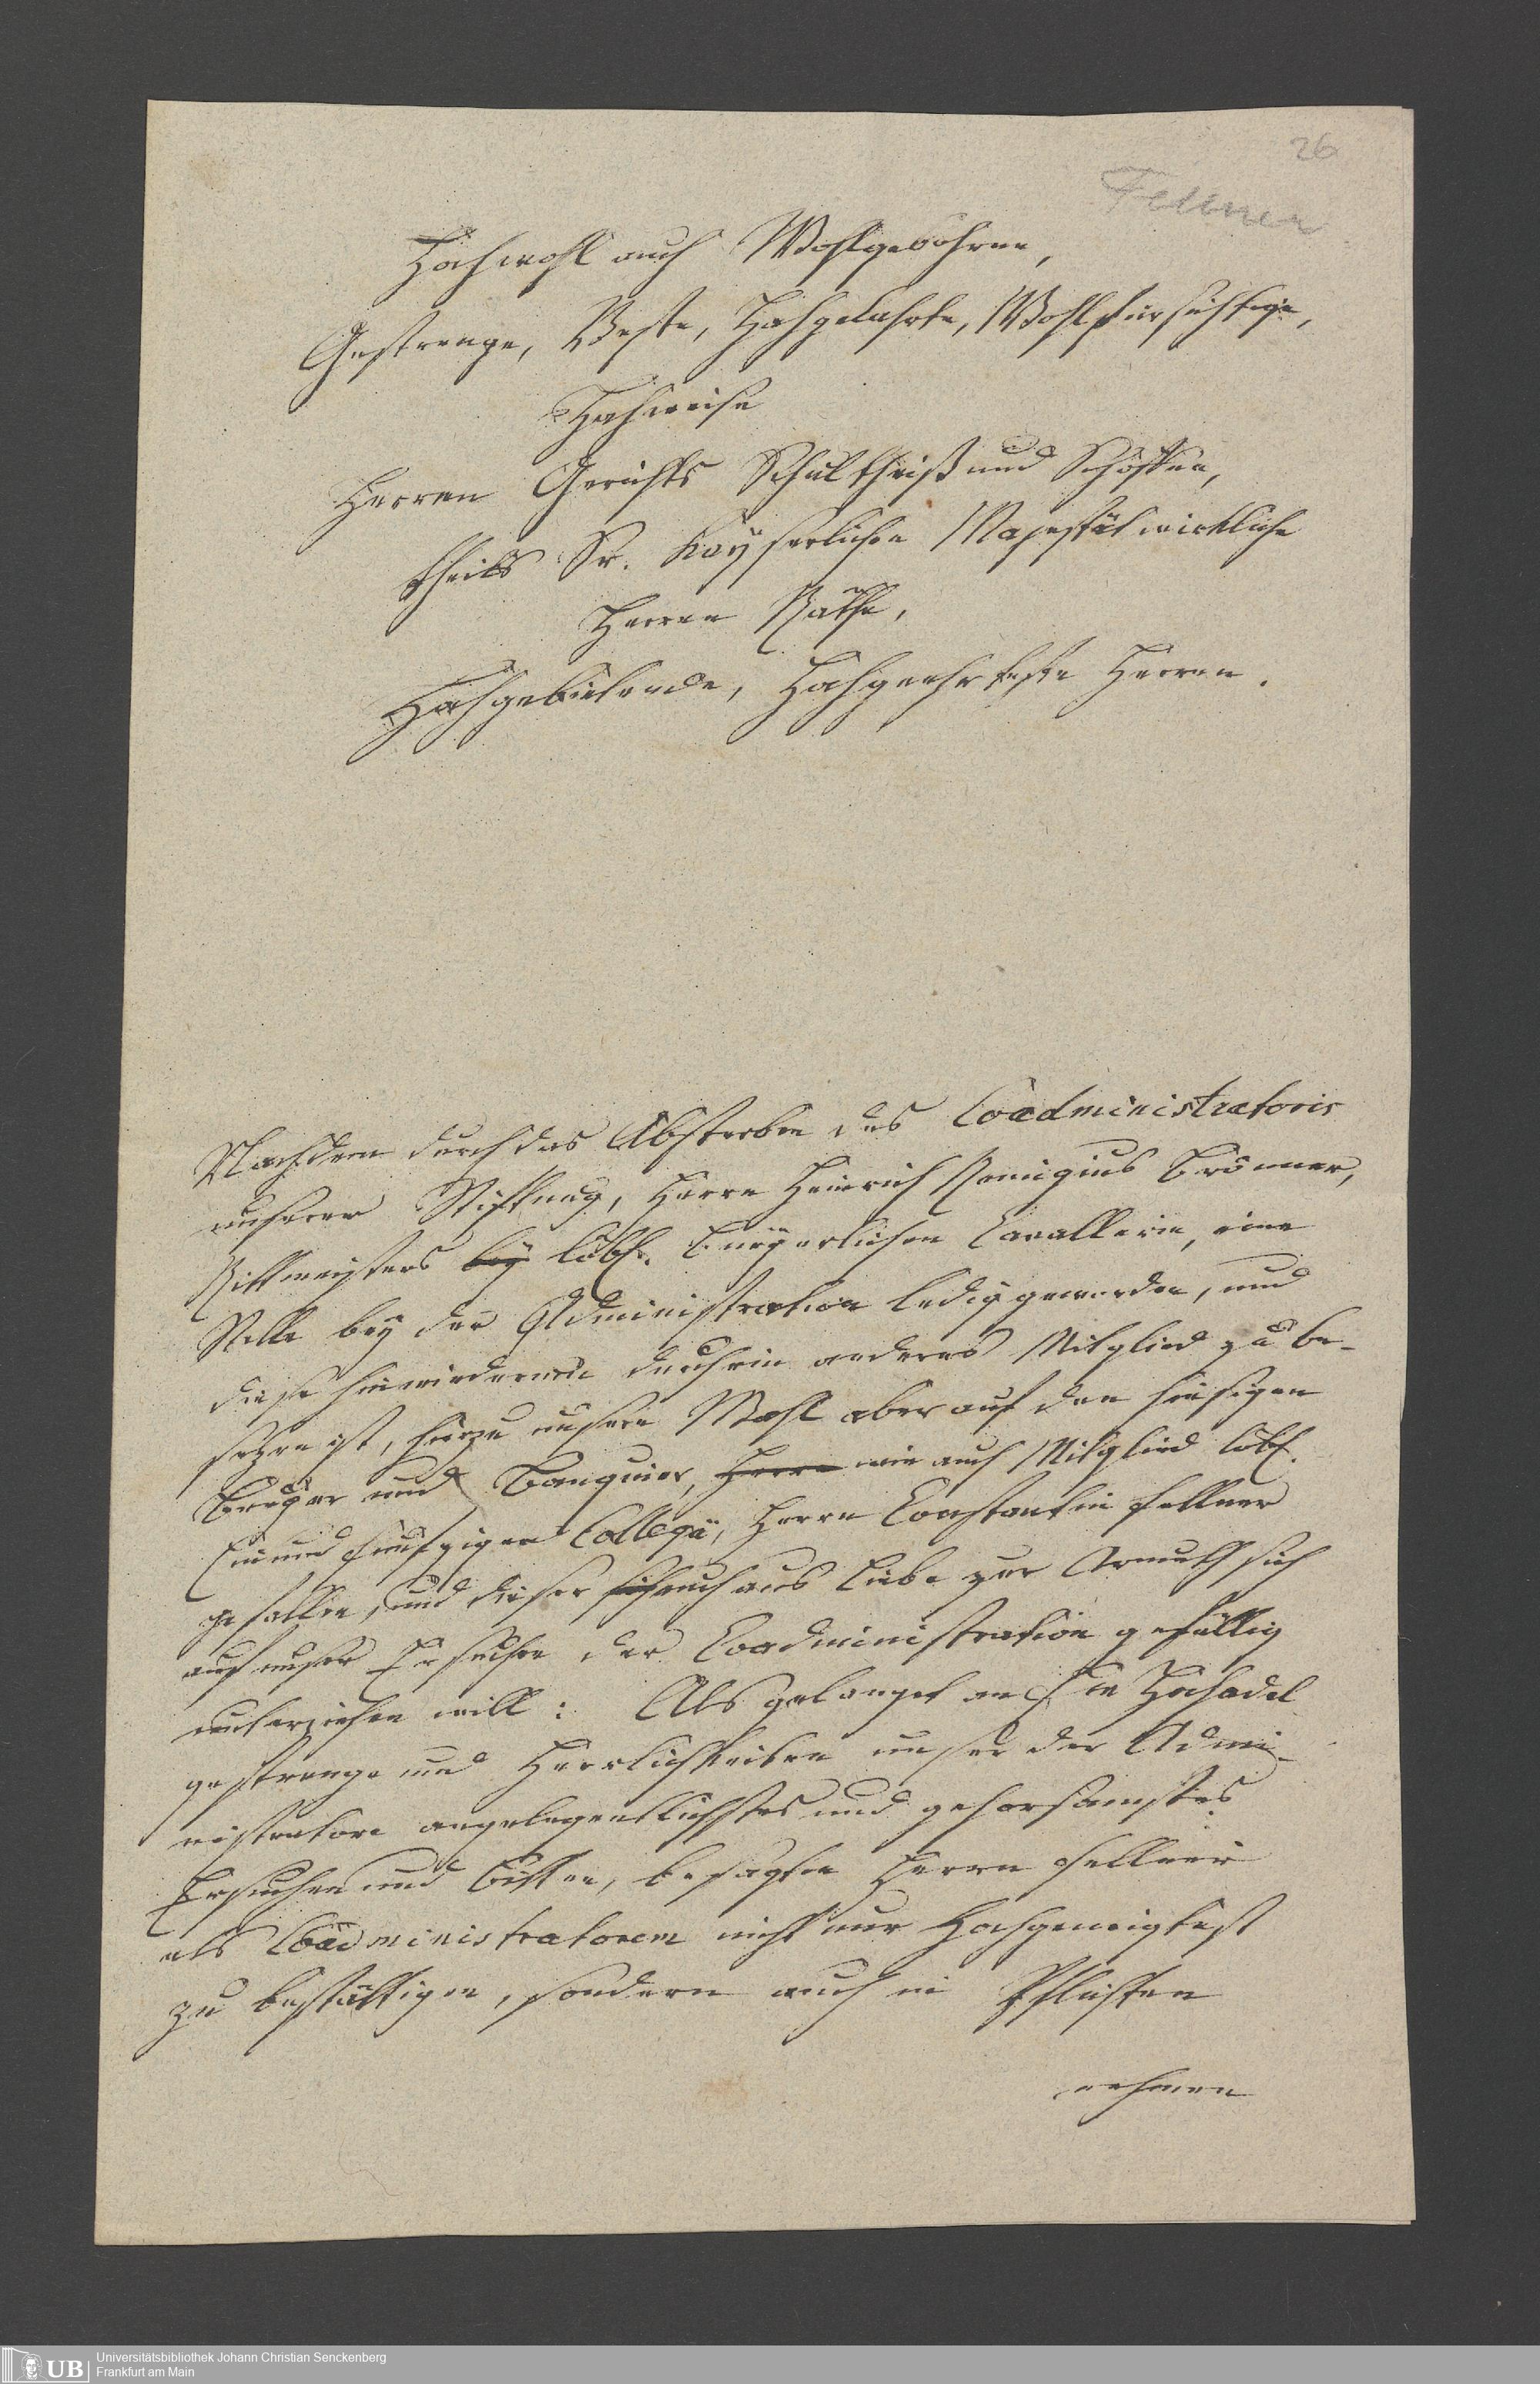 26
Fellner
Hochwohl auch Wohlgebohrne,
Gestrenge, Veste, Hochgelahrte, Wohlfürsichtige,
Hochweise
Herren Gerichts Schultheiß und Schöffen,
theils Sr. Kayserlichen Majestät wirkliche
Herren Räthe,
Hochgebietende, Hochgeehrteste Herren.
Nachdem durch das Absterben des Coadministratoris
unserer Stifftung, Herrn Heinrich Remigius Brönner,
Rittmeisters bey löbl. bürgerlichen Cavallerie, eine
Stelle bey der Administration ledig geworden, und
diese hinwiederum durch ein anderes Mitglied zu be-
sezen ist, hierzu unsere Wahl aber auf den hiesigen
Burger und Banquier, Herrn wie auch Mitglied löbl.
Ein und funfziger Collegii, Herrn Constantin Fellner
gefallen, und dieser sich auch aus Liebe zur Armuth sich
auf unser Ersuchen der Coadministration gefällig
unterziehen will: Als gelanget an Ew. Hochadel
gestrenge und Herrlichkeiten unser der Admi-
nistratorn angelegentlichstes und gehorsamstes
Ersuchen und bitten, besagten Herrn Fellner
als Coadministratorem nicht nur Hochgeneigtest
zu bestättigen, sondern auch in Pflichten
nehmen
UB
Universitätsbibliothek Johann Christian Senckenberg
Frankfurt am Main